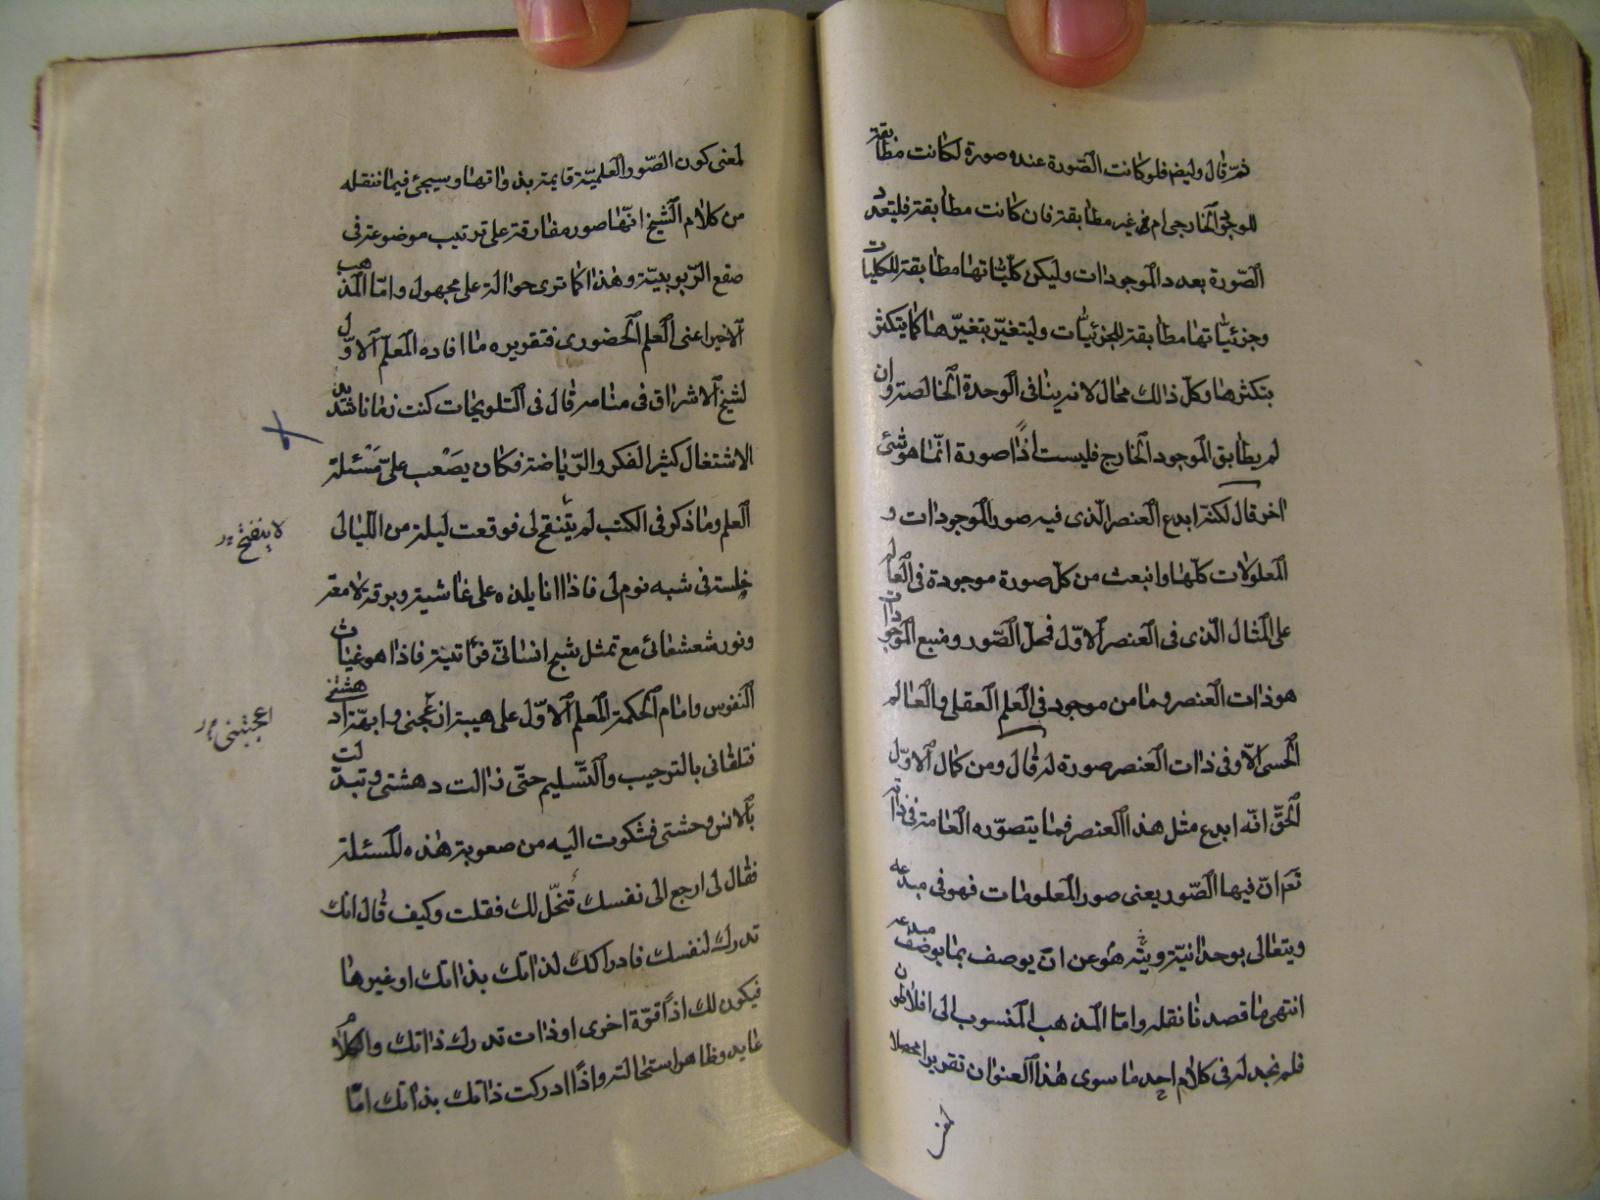 ثم قال وليض فلو كانت الصورة عنده صورة لكانت مطابقة
للموجود الخارجى ام غير مطابقة فان كانت مطابقة فليتعدد
الصورة بعدد الموجودات وليكن كلياتها مطابقة للكليات
وجزئياتها مطابقة للجزئيات وليتغير بتغيرها كما يتكثر
بتكثرها وكل ذالك محال لانه ينافى الوحدة الخالصة وان
لم يطابق الموجود الخارج فليست اذا صورة انما هو شئ
اخر قال لكنه ابدع العنصر الذى فيه صور الموجودات و
المعلولات كلها وانبعث من كل صورة موجودة فى العالم
على المثال الذى فى العنصر الاول فمحل الصور ومنبع الموجودات
هو ذات العنصر وما من موجود فى العلم العقلى والعالم
الحسى الا وفى ذات العنصر صورة له قال ومن كمال الاول
الحق انه ابدع مثل هذا العنصر فما يتصوره العامة فى ذاته
نعم ان فيها الصور يعنى صور المعلومات فهو فى مبدعه
ويتعالى بوحدانيته وينته هو عن ان يوصف بما يوصف مبدعه
انتهى ما قصدنا نقله واما المذهب المنسوب الى افلاطون
فلم نجد له فى كلام احد ما سوى هذا العنوان تقريرا محصلا
لمعنى
لمعنى كون الصور العلمية قايمة بذواتها وسيجئ فيما ننقله
من كلام الشيخ انها صور مفارقة على ترتيب موضوعة فى
صقع الربوبية وهذا كما ترى حوالة على مجهول واما المذهب
الاخير اعنى العلم الحضورى فتقريره ما افاده المعلم الاول
لشيخ الاشراق فى منامه قال فى التلويحات كنت زمانا شديد
الاشتغال كثير الفكر والرياضة فكان يصعب على مسئلة
العلم وما ذكر فى الكتب لم يتنقح لى فوقعت ليلة من الليالى
خلسة فى شبه نوم لى فاذا انا بلذه على غاشية وبرقة لامعة
ونور شعشعانى مع تمثل شبح انسانى فرأتينه فاذا هو غياث
النفوس وامام الحكمة المعلم الاول على هيبة ان عجبنى وابهة اد هشتنى
فتلقانى بالترحيب والتسليم حتى زالت دهشتى وتبدلت
بالانس وحشتى فشكوت اليه من صعوبة هذه المسئلة
فقال لى ارجع الى نفسك تنحل لك فقلت وكيف قال انك
تدرك لنفسك فادراكك لذاتك بذاتك او غيرها
فيكون لك اذا قوة اخرى او ذات تدرك ذاتك والكلام
عايد وظاهر استحالته واذا ادركت ذاتك بذاتك اما
لا يتضح
اعجبتنى